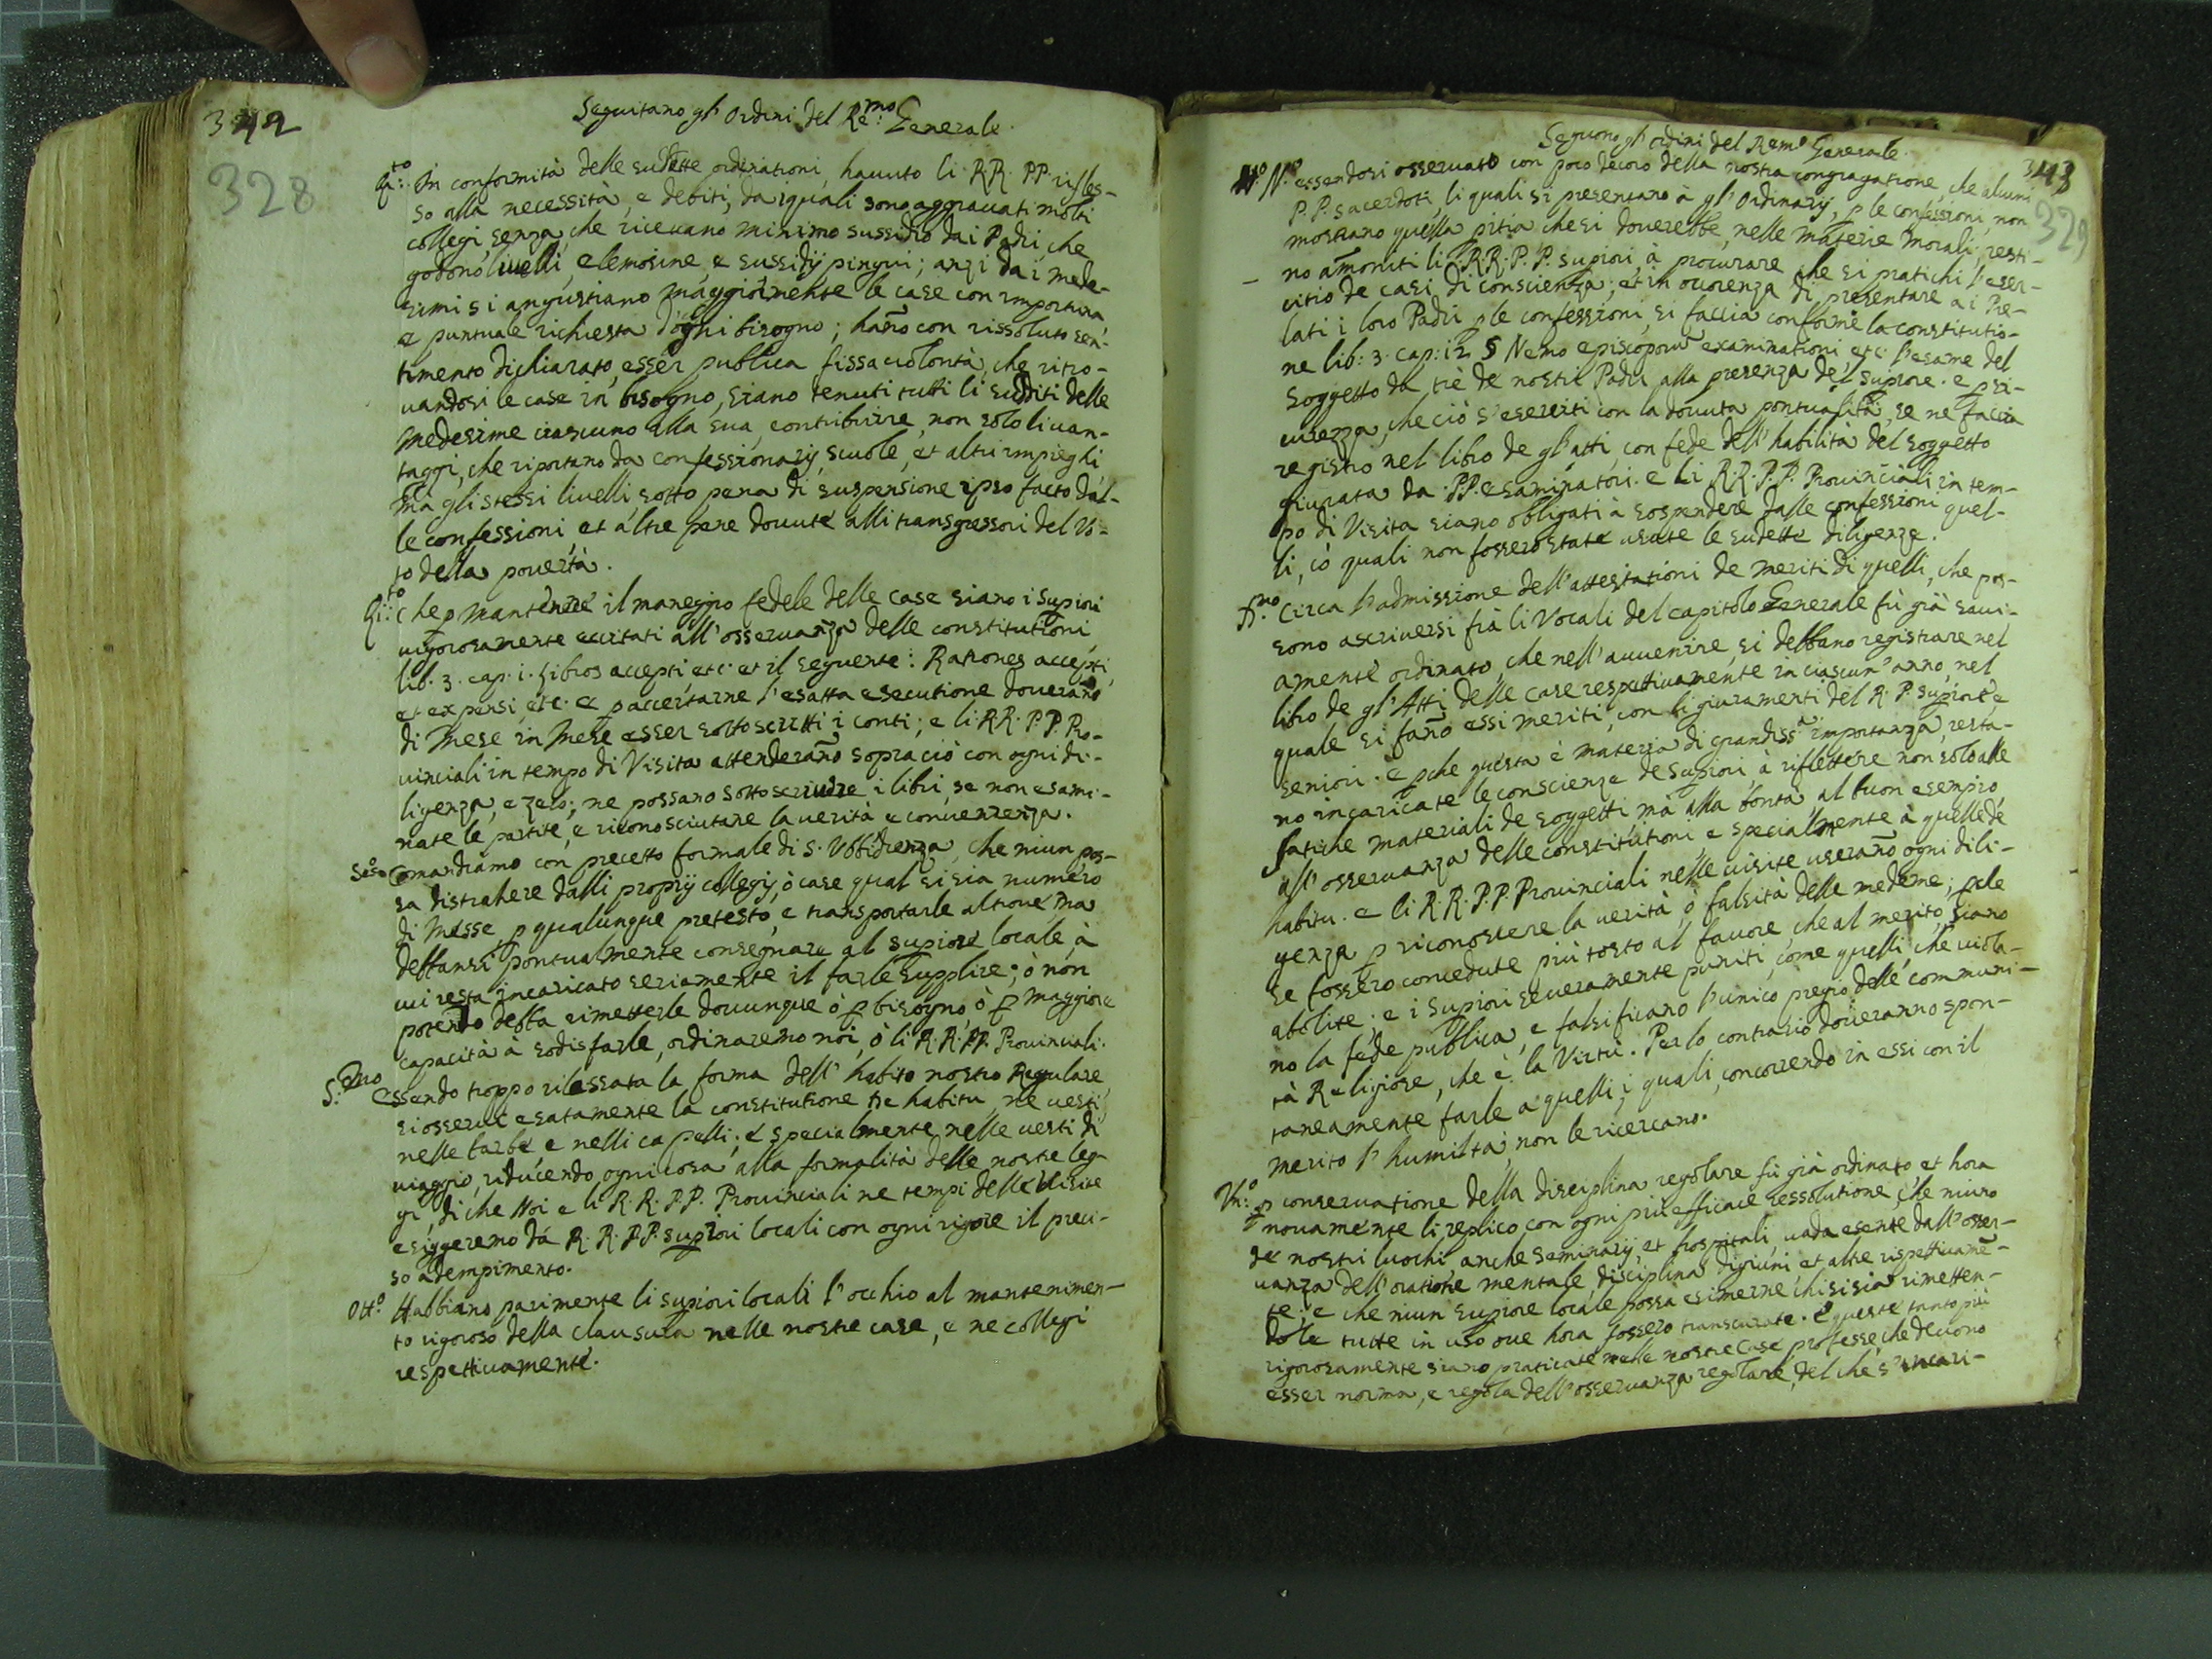 342
328
Seguitano gl' Ordini del Re:mo Generale.
Qa:to In conformità delle sudette ordinationi, hauuto li RR. PP. rifles-
so alla necessità, e debiti, da i quali sono aggrauati molti
collegi, senza, che riceuano minimo sussidio dai Padri, che
godono liuelli, elemosine, e sussidij pingui; anzi da i mede-
simi si angustiano maggiormente le case con importuna,
e puntuale richiesta d'ogni bisogno; hano con rissoluto sen-
timento dichiarato, esser publica fissa uolontà, che ritro-
uandosi le case in bisogno, siano tenuti tutti li sudditi delle
medesime ciascuno alla sua, contribuire, non solo li uan-
taggi, che riportano da confessionarij, scuole, et altri impieghi
mà gli stessi liuelli, sotto pena di suspensione ipso facto dal-
le confessioni, et altre pene douute alli transgressori del Vo-
to della pouertà.
Qi:to Che p mantenere il maneggio fedele delle case siano i Supiori
uigorosamente eccitati all'osseruanza delle constitutioni,
lib. 3. cap. i. Libros accepti etc. et il seguente: Rationes accepti,
et expensi, etc. e p accertarne l'esatta esecutione douerano
di Mese in Mese esser sottoscritti i conti; e li RR. PP. Pro-
uinciali in tempo di Visita attenderano sopra ciò con ogni di-
ligenza, e zelo; ne possano sottoscriuere i libri, se non esami-
nate le partite, e riconosciutane la uerità e conuenienza.
Sesto Comandiamo con precetto formale di S. Vbbidienza, che niun pos-
sa distrahere dalli proprij collegij, ò case qual si sia numero
di Messe, p qualunque pretesto, e transportarle altroue, ma
debbansi pontualmente consegnare al Supiore locale, à
cui resta incaricato seriamente il farle supplire; ò non
potendo debba rimetterle douunque ò p bisogno, ò p maggiore
capacità à sodisfarle, ordinaremo noi, ò li RR. PP. Prouinciali.
S:mo essendo troppo rilassata la forma dell'habito nostro Regulare,
si osserui esatamente la constitutione de habitu, ne uesti,
nelle barbe e nelli capelli; e specialmente nelle uesti di
uiaggio, riducendo ogni cosa alla formalità delle nostre leg-
gi, di che Noi e li RR. PP. Prouinciali ne tempi delle Visite
esiggeremo dà RR. PP. supiori locali con ogni rigore il preci-
so adempimento.
Ott:o Habbiano parimente li supiori locali l'occhio al mantenimen-
to rigoroso della clausura nelle nostre case, e ne collegi
respettiuamente.
Seguono gl' ordini del Remo Generale.
343
329
N:o essendosi osseruato con poco decoro della nostra congregatione, che alcuni
P.P. sacerdoti, li quali si presentano à gl'Ordinarij, p le confessioni, non
mostrano quella pitia, che si douerebbe, nelle materie morali; resti-
no amoniti li RR. P.P. supiori, à procurare che si pratichi l'eser-
citio de casi di conscienza; et in occorenza di presentare a i Pre-
lati i loro Padri p le confessioni, si faccia conforme la constitutio-
ne lib: 3. cap: i2 § Nemo episcoporum examinationi, etc. l'esame del
soggetto da trè de nostri Padri alla presenza del supiore. e p si-
curezza, che ciò s'eserciti con la douuta pontualità, se ne faccia
registro nel libro de gl'atti, con fede dell'habilità del soggetto
giurata da PP. esaminatori. e Li RR. PP. Prouinciali in tem-
po di Visita siano obligati à sospendere dalle confessioni quel-
li, cò quali non fossero state usate le sudette diligenze.
X:mo Circa l'admissione dell'attestationi de meriti di quelli, che pos-
sono ascriuersi frà li Vocali del capitolo Generale fù già saui-
amente ordinato, che nell'auuenire, si debbano registrare nel
libro de gl'Atti delle case respettiuamente in ciascun'anno, nel
quale si fano essi meriti, con li giuramenti del R. P. supiore e
seniori. e pche questa è materia di grandissa importanza, resta-
no incaricate le conscienze de supiori à riflettere non solo alle
fatiche materiali de soggetti mà alla bontà, al buon esempio,
all'osseruanza delle constitutioni, e specialmente à quelle de
habitu. e li RR. PP. Prouinciali nelle uisite userano ogni dili-
genza p riconoscere la uerità, ò falsità delle medeme; p che
se fossero concedute più tosto al fauore, che al merito, siano
abolite. e i supiori seueramente puniti, come quelli, che uiola-
no la fede publica, e falsificano l'unico pregio delle communi-
tà Religiose, che è la Virtù. Per lo contrario doueranno spon-
taneamente farle a quelli, i quali, concorrendo in essi con il
merito l'humiltà, non le ricercano.
Vn:o p conseruatione della disciplina regolare fù già ordinato, et hora
nouamente li replico con ogni più efficace ressolutione, che niuno
de nostri luochi, anche Seminarij, et hospitali, uada esente dall'osser-
uanza dell'oratione mentale, disciplina digiuni et altre rispettiuame-
te; e che niun supiore locale possa esimerne chi si sia rimetten-
dole tutte in uso oue hora fossero transcurate. e queste tanto più
rigorosamente siano praticate nelle nostre Case professe, che deuono
esser norma, e regola dell'osseruanza regolare, del che s'incari-